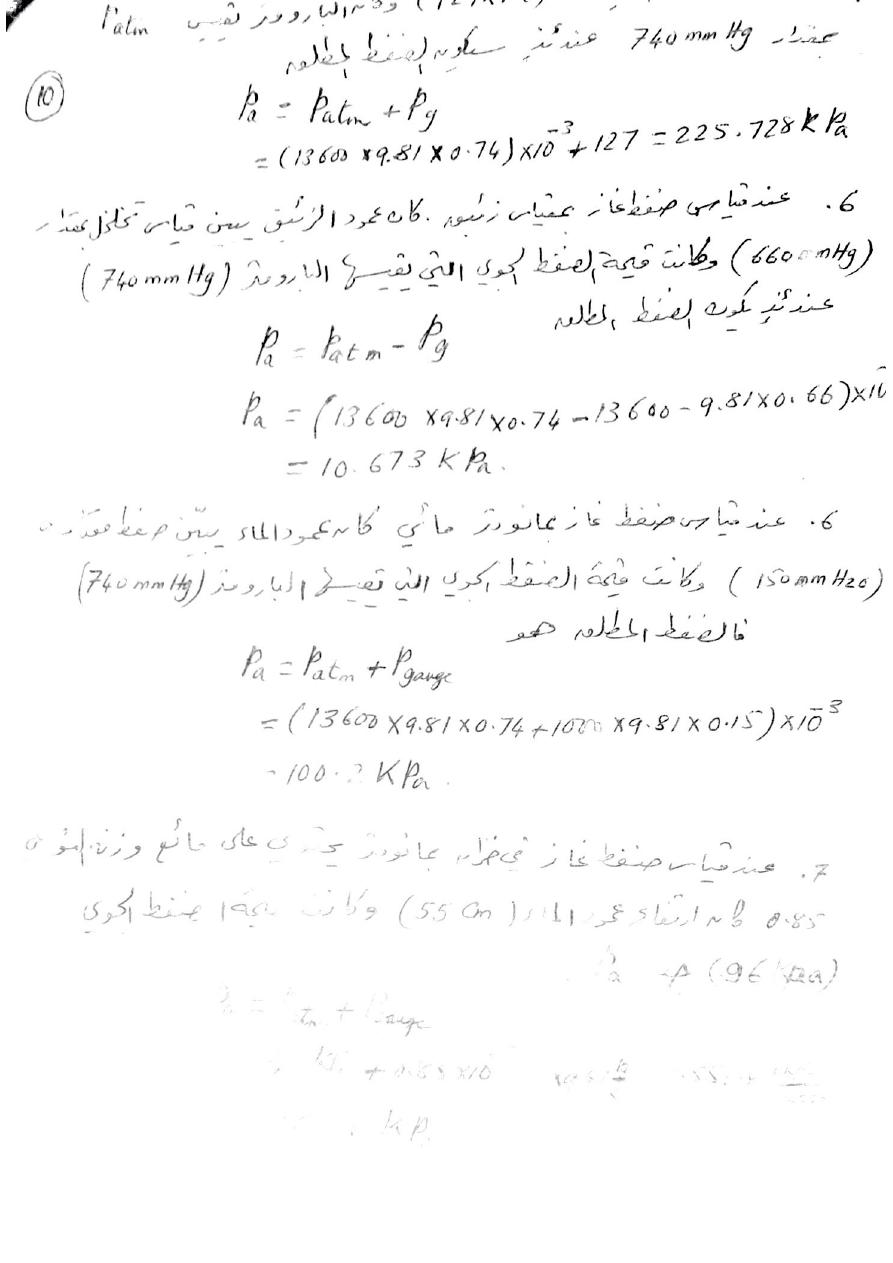 البارومتر تقيس Patm
بمقدار 740 mm Hg عندئذٍ سيكون الضغط المطلق
10
Pa = Patm + Pg
= (13600 × 9.81 × 0.74) × 10⁻³ + 127 = 225.728 kPa
6. عند قياس ضغط غاز بمقياس زئبق. كان عمود الزئبق يبين قياس تخلخل بمقدار
(660 mmHg) وكانت قيمة الضغط الجوي التي يقيسها البارومتر (740 mm Hg)
عندئذٍ يكون الضغط المطلق
Pa = Patm − Pg
Pa = (13600 × 9.81 × 0.74 − 13600 − 9.81 × 0.66) × 10
= 10.673 KPa.
6. عند قياس ضغط غاز بمانومتر مائي كان عمود الماء يبيّن ضغط
(150 mm H2O) وكانت قيمة الضغط الجوي التي تقيسها البارومتر (740 mm Hg)
فالضغط المطلق هو
Pa = Patm + Pgauge
= (13600 × 9.81 × 0.74 + 1000 × 9.81 × 0.15) × 10⁻³
= 100. KPa.
7. عند قياس ضغط غاز في خزان بمانومتر يحتوي على مائع وزنه
0.85 كان ارتفاع عمود الماء (55 Cm) وكانت قيمة الضغط الجوي
(96 kPa)
+ Pgauge
+ 0.85 × 10
kP